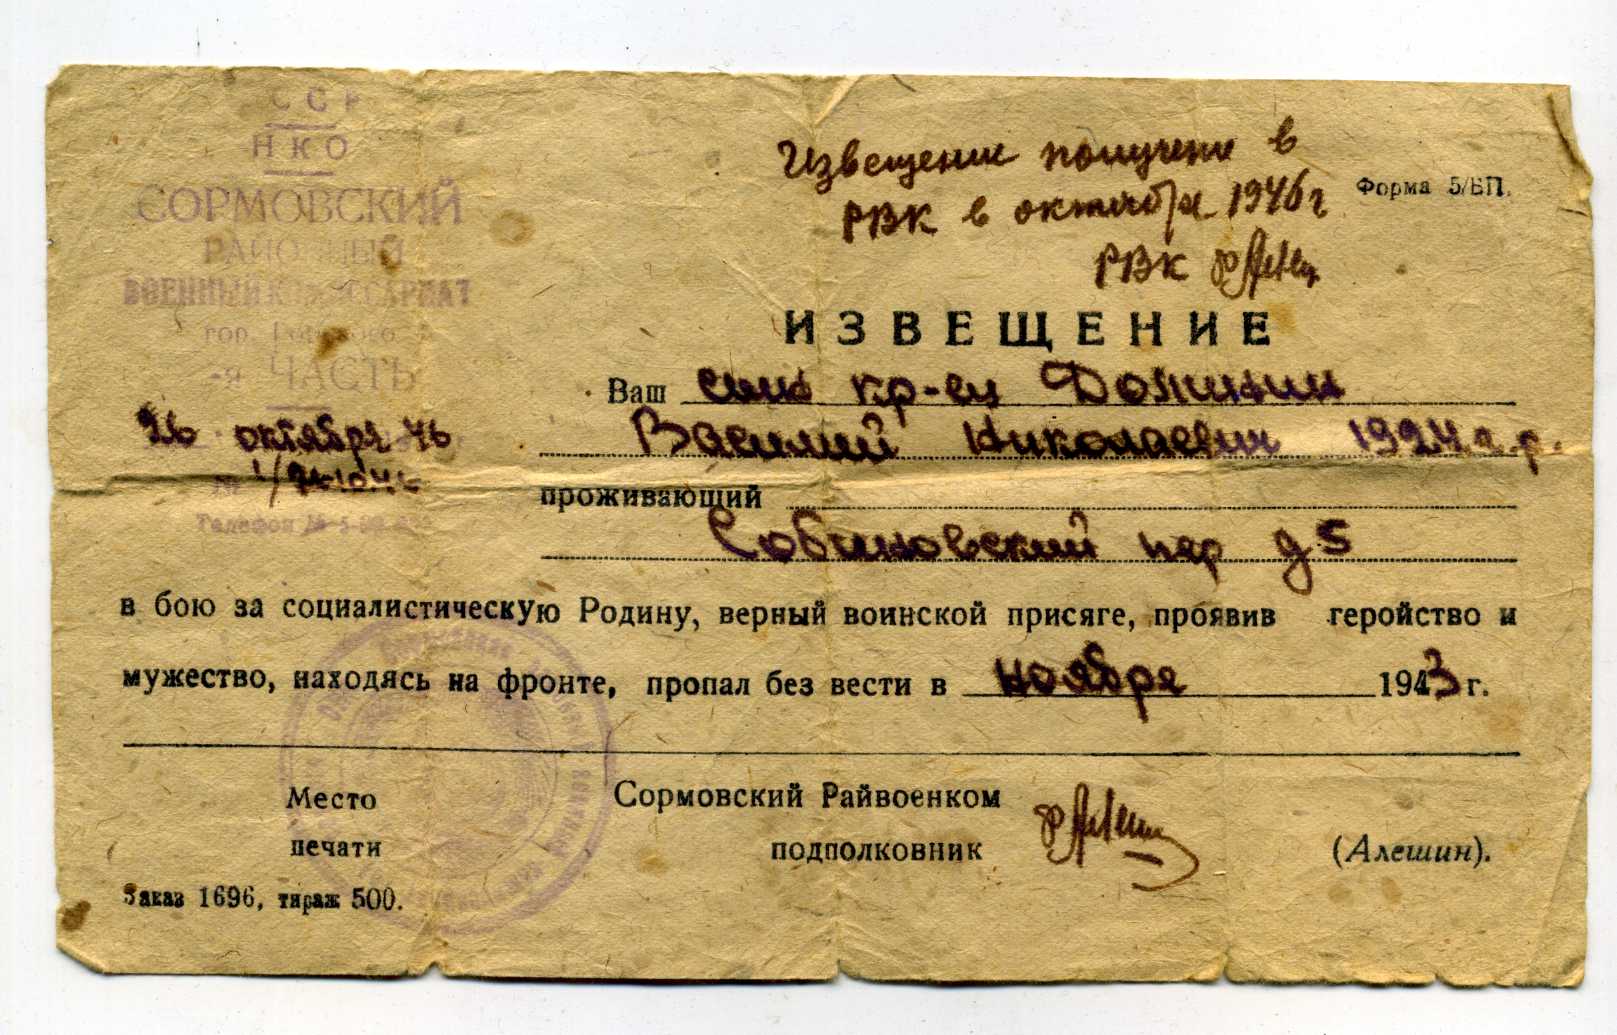 ССР
НКО
СОРМОВСКИЙ
РАЙОННЫЙ
ВОЕННЫЙ КОМИССАРИАТ
гор. Горького
-я ЧАСТЬ
26 октября 46
№ 1/
Телефон №
Извещение получено в
РВК в октябре 1946 г
РВК
Форма 5/БП.
ИЗВЕЩЕНИЕ
Ваш сын кр-ец
Василий Николаевич 1924 г.р.
проживающий
Собиновский пер д 5
в бою за социалистическую Родину, верный воинской присяге, проявив геройство и
мужество, находясь на фронте, пропал без вести в ноябре 1943 г.
Место
печати
Сормовский Райвоенком
подполковник
(Алешин).
Заказ 1696, тираж 500.